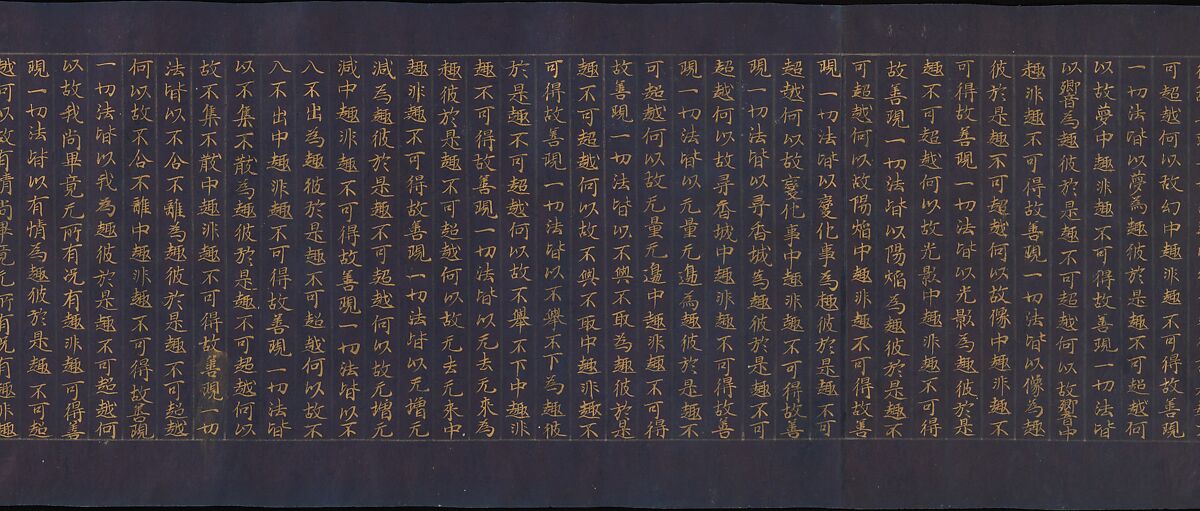 可超越何以故幻中趣非趣不可得故善現
一切法皆以夢為趣彼於是趣不可超越何
以故夢中趣非趣不可得故善現一切法皆
以響為趣彼於是趣不可超越何以故響中
趣非趣不可得故善現一切法皆以像為趣
彼於是趣不可超越何以故像中趣非趣不
可得故善現一切法皆以光影為趣彼於是
趣不可超越何以故光影中趣非趣不可得
故善現一切法皆以陽焰為趣彼於是趣不
可超越何以故陽焰中趣非趣不可得故善
現一切法皆以變化事為趣彼於是趣不可
超越何以故變化事中趣非趣不可得故善
現一切法皆以尋香城為趣彼於是趣不可
超越何以故尋香城中趣非趣不可得故善
現一切法皆以无量无邊為趣彼於是趣不
可超越何以故无量无邊中趣非趣不可得
故善現一切法皆以不與不取為趣彼於是
趣不可超越何以故不與不取中趣非趣不
可得故善現一切法皆以不舉不下為趣彼
於是趣不可超越何以故不舉不下中趣非
趣不可得故善現一切法皆以无去无來為
趣彼於是趣不可超越何以故无去无來中
趣非趣不可得故善現一切法皆以无增无
減為趣彼於是趣不可超越何以故无增无
減中趣非趣不可得故善現一切法皆以不
入不出為趣彼於是趣不可超越何以故不
入不出中趣非趣不可得故善現一切法皆
以不集不散為趣彼於是趣不可超越何以
故不集不散中趣非趣不可得故善現一切
法皆以不合不離為趣彼於是趣不可超越
何以故不合不離中趣非趣不可得故善現
一切法皆以我為趣彼於是趣不可超越何
以故我尚畢竟无所有況有趣非趣可得善
現一切法皆以有情為趣彼於是趣不可超
越何以故有情尚畢竟无所有況有趣非趣